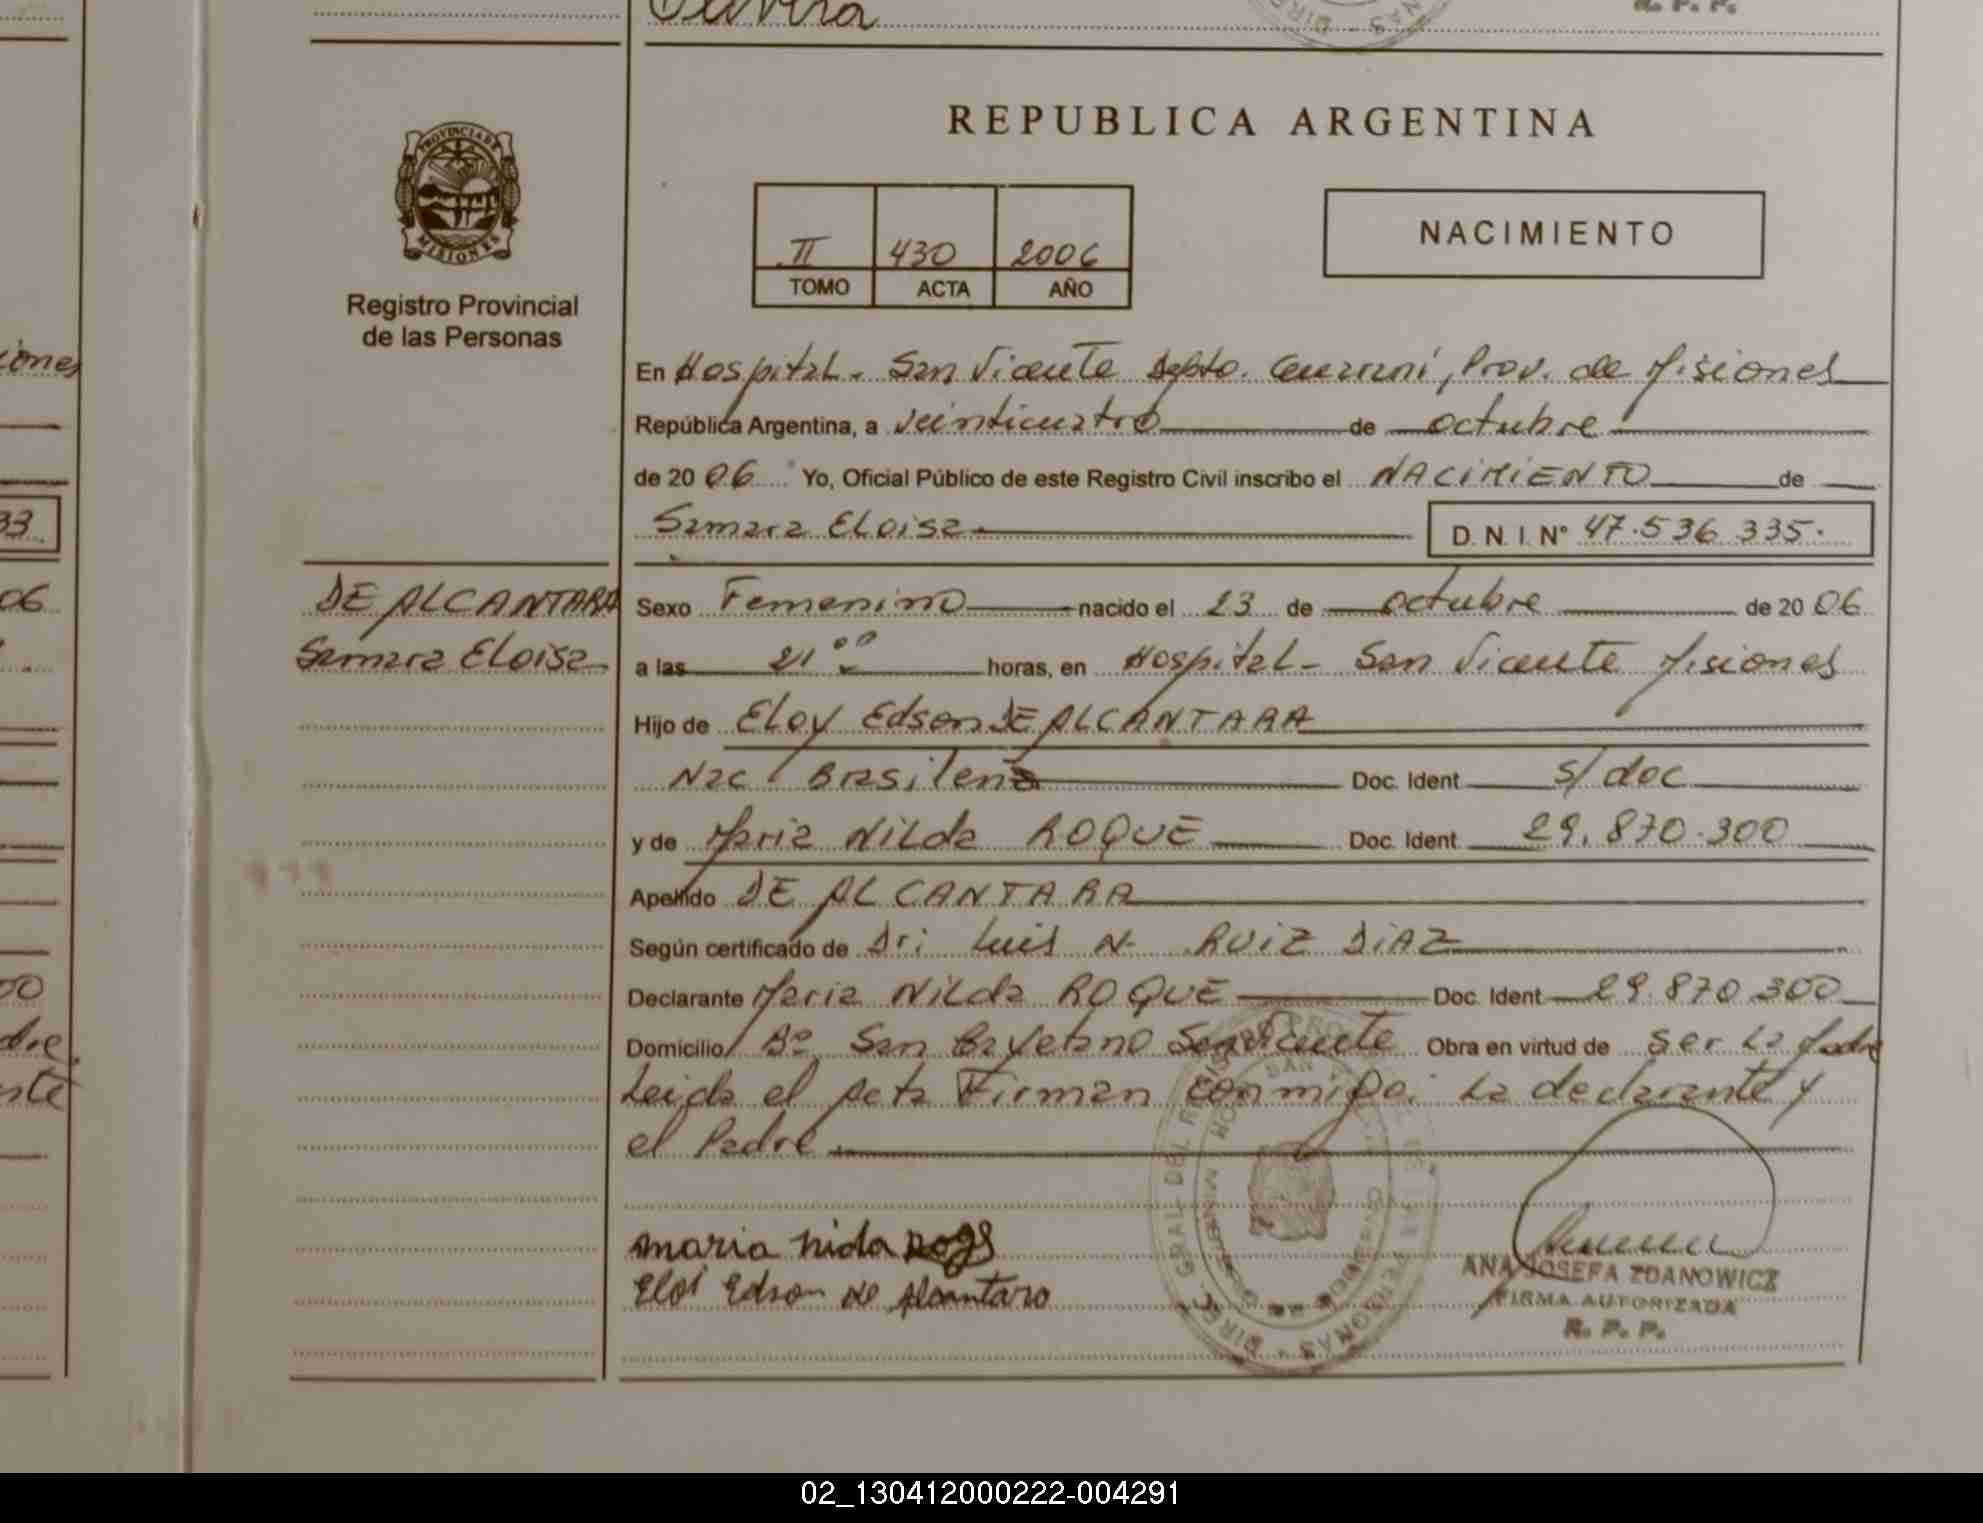 Olivera
R. P. P.
REPUBLICA ARGENTINA
PROVINCIA DE
MISIONES
Registro Provincial
de las Personas
II 430 2006
TOMO ACTA AÑO
NACIMIENTO
En Hospital - San Vicente Depto. Guaraní, Prov. de Misiones
República Argentina, a veinticuatro de octubre
de 2006 Yo, Oficial Público de este Registro Civil inscribo el NACIMIENTO de
Samara Eloisa D. N. I. N° 47.536.335.
DE ALCANTARA
Samara Eloisa
Sexo Femenino nacido el 23 de octubre de 2006
a las 21 00 horas, en Hospital - San Vicente Misiones
Hijo de Eloy Edson DE ALCANTARA
Nac. Brasilena Doc. Ident s/doc
y de Maria Nilda ROQUE Doc. Ident 29.870.300
Apellido DE ALCANTARA
Según certificado de Dr: Luis N. RUIZ DIAZ
Declarante Maria Nilda ROQUE Doc. Ident 29.870.300
Domicilio B° San Cayetano San Vicente Obra en virtud de ser la Madre
Leida el Acta Firman conmigo: La declarante y
el Padre
maria nida
Eloi Edson de Alcantara
ANA JOSEFA ZDANOWICZ
FIRMA AUTORIZADA
R. P. P.
iones
33
06
00
dre,
nte
02_130412000222-004291